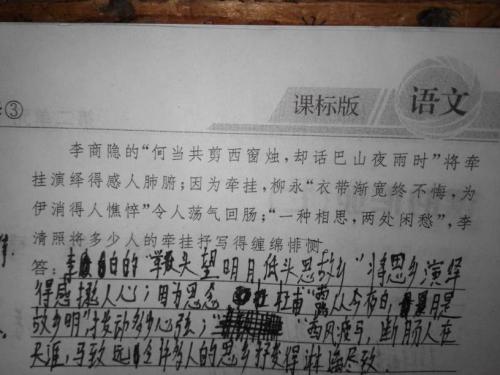 ③
课标版 语文
李商隐的“何当共剪西窗烛,却话巴山夜雨时”将牵
挂演绎得感人肺腑;因为牵挂,柳永“衣带渐宽终不悔,为
伊消得人憔悴”令人荡气回肠;“一种相思,两处闲愁”,李
清照将多少人的牵挂抒写得缠绵悱恻
答:李白的“头望明月低头思故乡”将思乡演绎
得感人心;因为思念杜甫“露从今夜白,月是
故乡明”拨动多少心弦;“西风瘦马,断肠人在
天涯,马致远令许多人的思乡抒发得淋漓尽致.